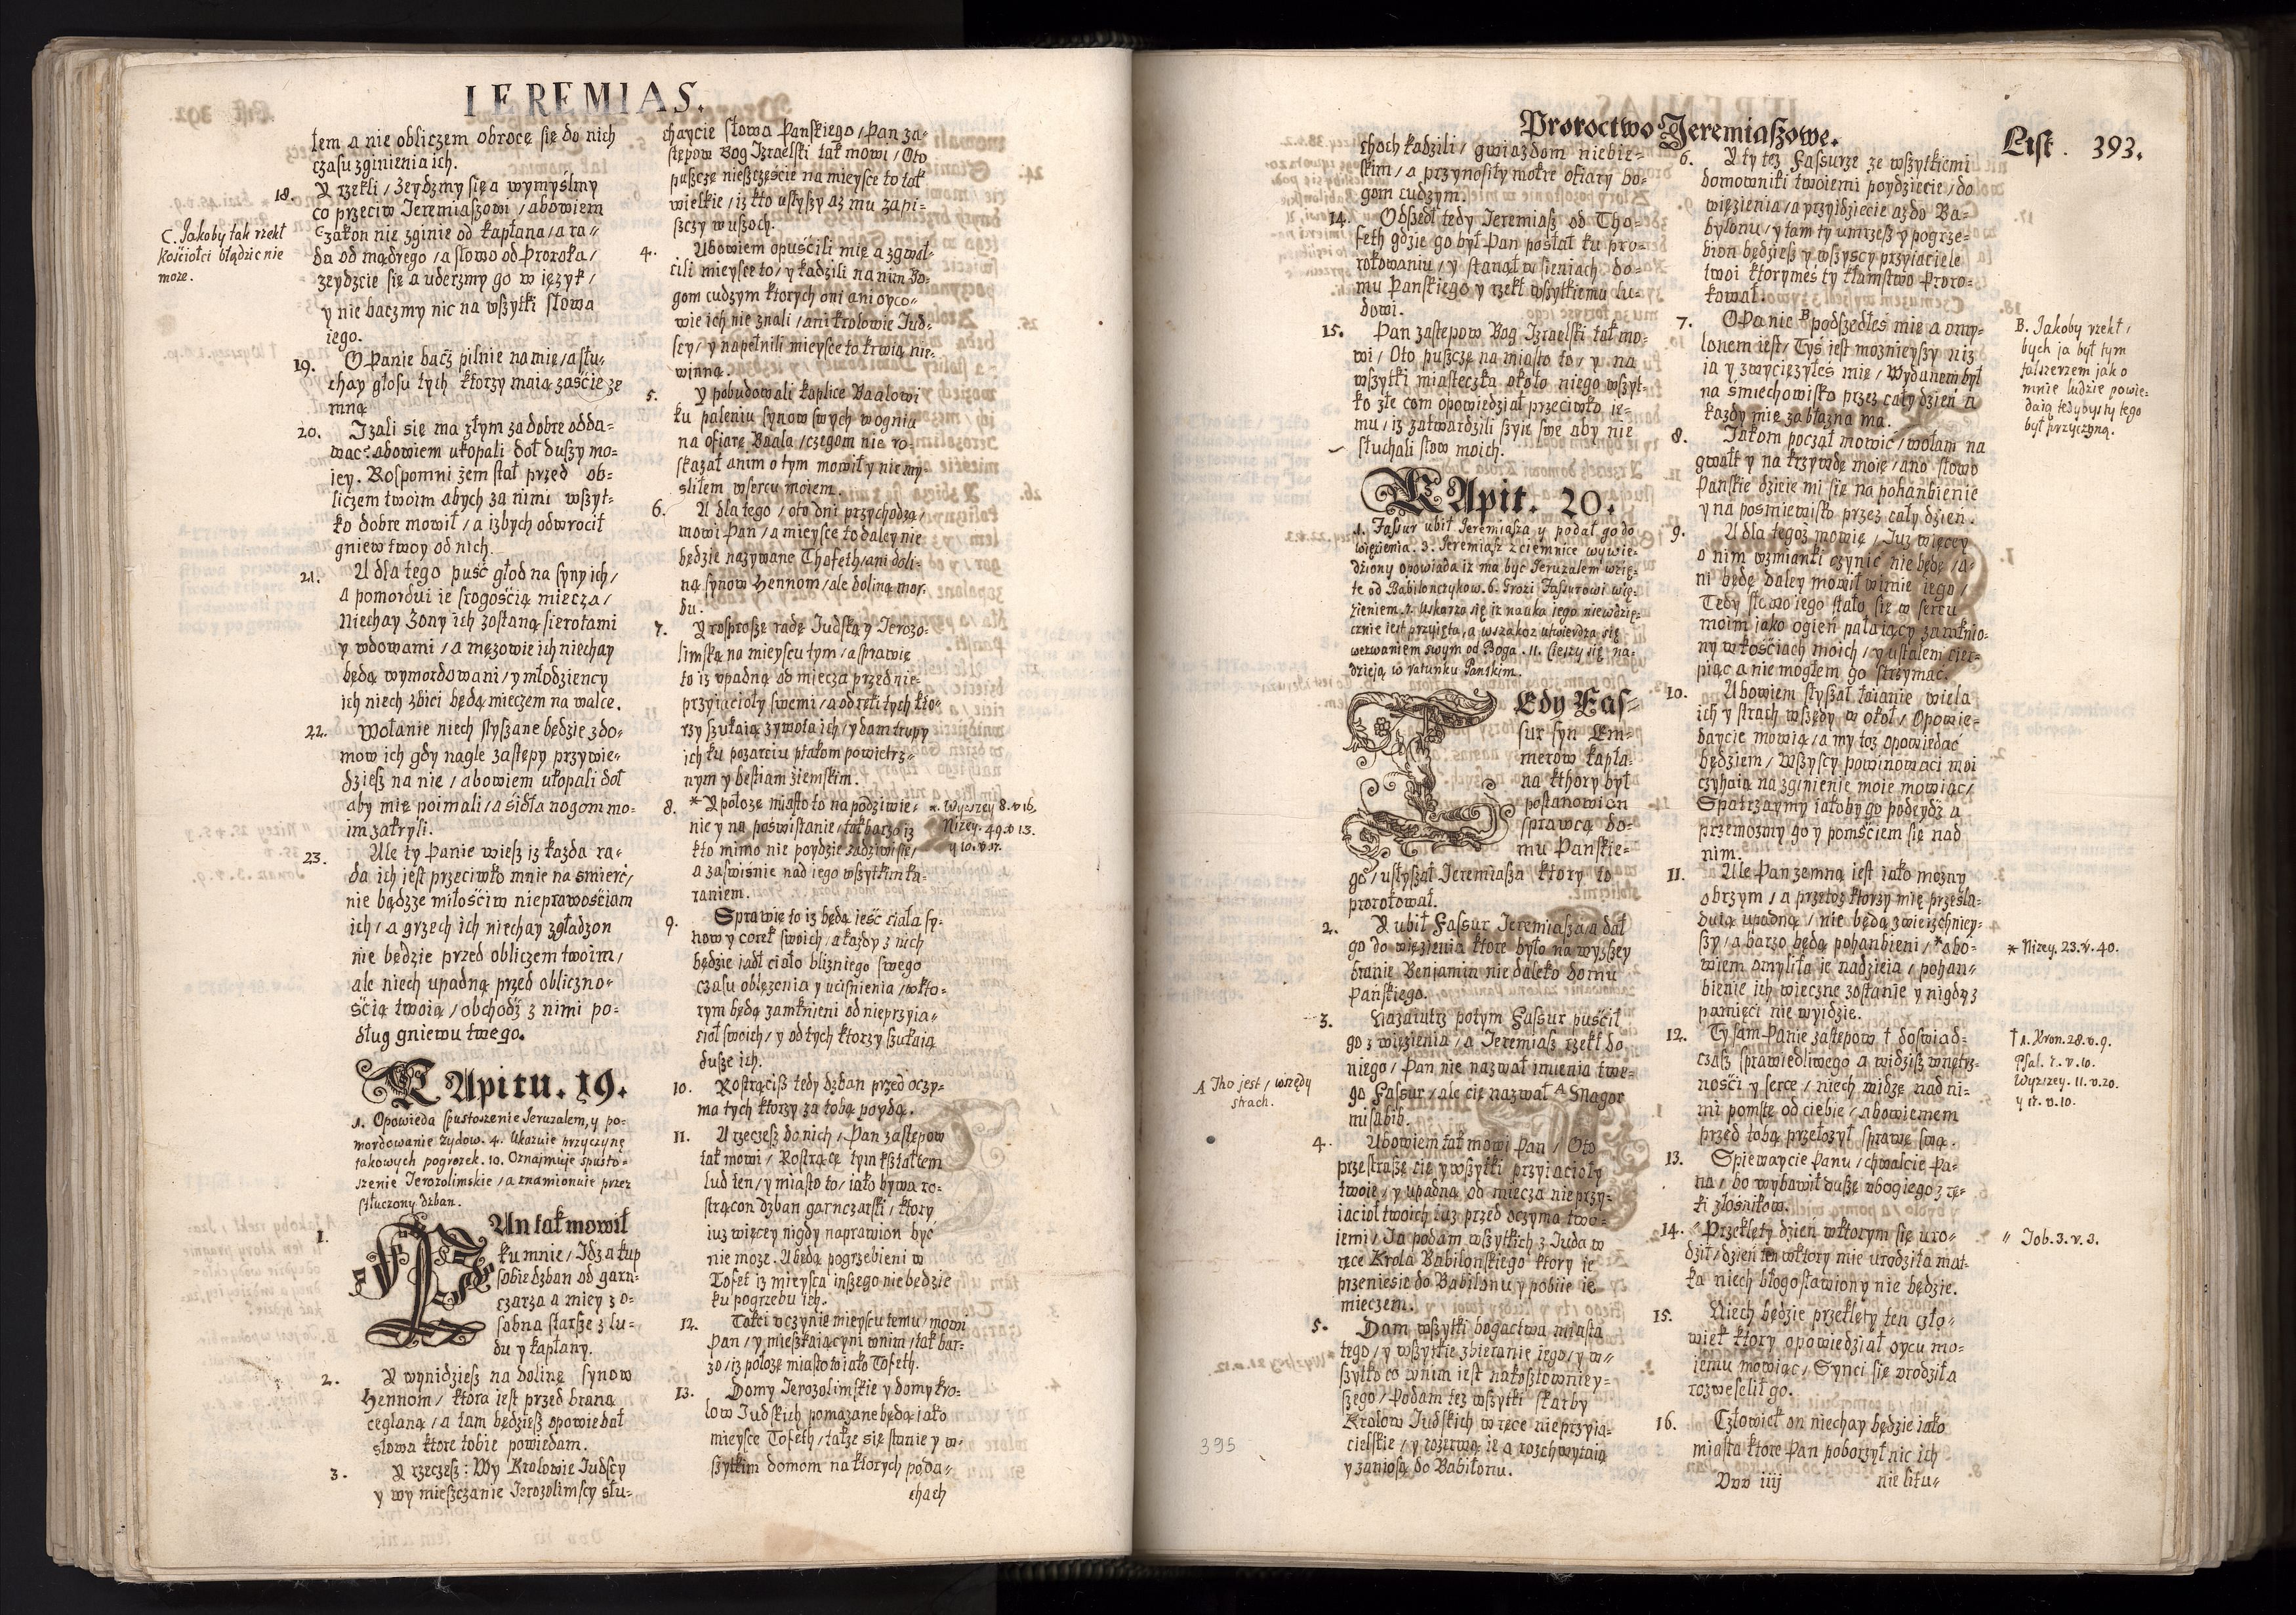 IEREMIAS.
tem a nie obliczem obrocę się do nich
czasu zginienia ich.
18. Y rzekli / Zeydzmy się a wymyslmy
co przeciw Jeremiaszowi / abowiem
C zakon nie zginie od kapłana / a ra⸗
da od mądrego / a słowo od Proroka /
zeydzcie się a uderzmy go w ięzyk /
y nie baczmy nic na wszytki słowa
iego.
C. Jakoby tak rzekł
Kościołci błądzic nie
może.
19. O Panie bacz pilnie na mię / a słu⸗
chay głosu tych / ktorzy maią zaście ze
mną
20. Izali się ma złym za dobre odda⸗
wac: abowiem ukopali doł duszy mo⸗
iey. Rospomni żem stał przed ob⸗
liczem twoim abych za nimi wszyt⸗
ko dobre mowił / a iżbych odwrocił
gniew twoy od nich.
21. A dla tego puść głod na syny ich /
a pomordui ie srogością miecza /
Niechay Żony ich zostaną sierotami
y wdowami / a mężowie ich niechay
będą wymordowani / y młodziency
ich niech zbici będą mieczem na walce.
22. Wołanie niech słyszane będzie z do⸗
mow ich gdy nagle zastępy przywie⸗
dziesz na nie / abowiem ukopali doł
aby mię poimali / a sidła nogom mo⸗
im zakryli.
23. Ale ty Panie wiesz iż każda ra⸗
da ich jest przeciwko mnie na smierć /
nie bądzże miłościw nieprawościam
ich / a grzech ich niechay zgładzon
nie będzie przed obliczem twoim /
ale niech upadną przed obliczno⸗
ścią twoią / obchodź z nimi po⸗
dług gniewu twego.
CApitu. 19.
1. Opowieda spustoszenie Jeruzalem, y po⸗
mordowanie Żydow. 4. Ukazuie przyczynę
takowych pogrozek. 10. Oznajmuje spusto⸗
szenie Jerozolimskie / a znamionuie przez
stłuczony dzban.
1. PAn tak mowił
ku mnie / Idz a kup
sobie dzban od garn⸗
czarza a miey z o⸗
sobna starsze z lu⸗
du y kapłany.
2. Y wynidziesz na dolinę synow
Hennom / ktora iest przed braną
ceglaną / a tam będziesz opowiedał
słowa ktore tobie powiedam.
3. Y rzeczesz: Wy Krolowie Judscy
y wy mieszczanie Jerozolimscy słu⸗
chaycie słowa Pańskiego / Pan za⸗
stępow Bog Izraelski tak mowi / Oto
puszczę nieszczęście na mieysce to tak
wielkie / iż kto usłyszy aż mu zapi⸗
szczy w uszoch.
4. Abowiem opuścili mię a zgwał⸗
cili mieysce to / y kadzili na nim Bo⸗
gom cudzym ktorych oni ani oyco⸗
wie ich nie znali / ani krolowie Jud⸗
scy / y napełnili mieysce to krwią nie⸗
winną.
5. Y pobudowali kaplice Baalowi
ku paleniu synow swych w ogniu
na ofiarę Baala / czegom nie ro⸗
skazał anim o tym mowił y nie my⸗
sliłem w sercu moiem.
6. A dla tego / oto dni przychodzą /
mowi Pan / a mieysce to daley nie
będzie nazywane Thofeth / ani doli⸗
ną synow Hennom / ale doliną mor⸗
du.
7. Y rosproszę radę Judską y Jerozo⸗
limską na mieyscu tym / a sprawię
to iż upadną od miecza przed nie⸗
przyiacioły swemi / a od ręki tych kto⸗
rzy szukaią żywota ich / y dam trupy
ich ku pozarciu ptakom powietrz⸗
nym y bestiam ziemskim.
8. * Y położę miasto to na podziwie⸗
nie y na poświstanie / tak barzo iż
kto mimo nie poydzie zadziwi się /
a zaświśnie nad iego wszytkim ka⸗
raniem.
*. Wyższey 8. v 16,
Niżey. 49. v 13.
y 10. v 17.
9. Sprawię to iż będą jeść ciała sy⸗
now y corek swoich / a każdy z nich
będzie iadł ciało bliźniego swego
czasu oblężenia y uciśnienia / w kto⸗
rym będą zamknieni od nieprzyia⸗
cioł swoich / y od tych ktorzy szukaią
dusze ich.
10. Rostrąciss tedy dzban przed oczy⸗
ma tych ktorzy za tobą poydą.
11. A rzeczesz do nich / Pan zastępow
tak mowi / Rostrącę tym kształtem
lud ten / y miasto to / iako bywa ro⸗
strącon dzban garnczarski / ktory
iuż więcey nigdy naprawion być
nie może. A będą pogrzebieni w
Tofet iż mieysca inszego nie będzie
ku pogrzebu ich.
12. Takci uczynię mieyscu temu / mowi
Pan / y mieszkaiącym w nim / tak bar⸗
zo / iż położę miasto to iako Tofeth.
13. Domy Jerozolimskie y domy kro⸗
low Judskich pomazane będą iako
mieysce Tofeth / także się stanie y w⸗
szytkim domom na ktorych poda⸗
chach
Proroctwo Jeremiaszowe.
List. 393.
choch kadzili / gwiazdom niebie⸗
skim / a przynosiły mokre ofiary bo⸗
gom cudzym.
14. Odszedł tedy Jeremiasz od Tho⸗
feth gdzie go był Pan posłał ku pro⸗
rokowaniu / y stanął w sieniach do⸗
mu Panskiego y rzekł wszytkiemu lu⸗
dowi.
15. Pan zastępow Bog Izraelski tak mo⸗
wi / Oto puszczę na miasto to / y na
wszytki miasteczka około niego wszyt⸗
ko złe com opowiedział przeciwko ie⸗
mu / iż zatwardzili szyię swę aby nie
słuchali słow moich.
CApit. 20.
1. Fassur ubił Jeremiasza y podał go do
więzienia. 3. Jeremiasz z ciemnice wywie⸗
dziony opowiada iż ma być Jeruzalem wzię⸗
te od Babilonczykow. 6. Grozi Fassurowi wię⸗
zieniem. 7. Uskarża się iż nauka jego niewdzię⸗
cznie iest przyięta, a wszakoz utwierdza się
wezwaniem swym od Boga. 11. Cieszy się na⸗
dzieją w ratunku Panskim.
TEdy Fas⸗
sur syn Em⸗
merow kapła⸗
na kthory był
postanowion
sprawcą do⸗
mu Panskie⸗
go / usłyszał Jeremiasza ktory to
prorokował.
2. Y ubił Fassur Jeremiasza / a dał
go do więzienia ktore było na wyższey
branie Benjamin niedaleko domu
Pańskiego.
3. Nazaiutrz potym Fassur puścił
go z więzienia / a Jeremiasz rzekł do
niego / Pan nie nazwał imienia twe⸗
go Fassur / ale cię nazwał A Snagor
misabib.
A Tho jest / wszędy
strach.
4. Abowiem tak mowi Pan / Oto
przestraszę cię y wszytki przyiacioły
twoie / y upadną od miecza nieprzy⸗
iacioł twoich iuż przed oczyma two⸗
iemi / Ja podam wszytkich z Juda w
ręce Krola Babilonskiego ktory ie
przeniesie do Babilonu y pobiie ie
mieczem.
5. Dam wszytki bogactwa miasta
tego / y wszytkie zbieranie jego / y w⸗
szytko co w nim iest nakosztowniey⸗
szego / Podam też wszytki skarby
Krolow Judskich w ręce nieprzyia⸗
cielskie / y rozerwą ie a rozchwytaią
y zaniosą do Babilonu.
395
6. Y ty też Fassurze ze wszytkiemi
domowniki twoiemi poydziecie / do
więzienia / a przyidziecie aż do Ba⸗
bylonu / y tam ty umrzesz y pogrze⸗
bion będziesz y wszyscy przyiaciele
twoi ktorymeś ty kłamstwo Proro⸗
kował.
7. O Panie B podszedłeś mię a omy⸗
lonem iest / Tyś iest możnieyszy niż
ia y zwyciężyłeś mię / Wydanem był
na smiechowisko przez cały dzień a
każdy mię za błazna ma.
B. Jakoby rzekł /
bych ja był tym
fałszerzem jako
mnie ludzie powie⸗
daią tedybys ty tego
był przyczyną.
8. Jakom począł mowić / wołam na
gwałt y na krzywdę moię / ano słowo
Pańskie dzieie mi się na pohanbienie
y na posmiewisko przez cały dzień.
9. A dla tegoż mowię / Już więcey
o nim wzmianki czynić nie będę / a⸗
ni będę daley mowił w imię iego /
Tedy słowo iego stało się w sercu
moim jako ogień pałaiący zamknio⸗
ny w kościach moich / y ustałem cier⸗
piąc a nie mogłem go strzymać.
10. Abowiem słyszał łaianie wiela
ich y strach wszędy w okoł / Opowie⸗
daycie mowią / a my toż opowiedać
będziem / Wszyscy powinowaci moi
czyhaią na zginienie moie mowiąc /
Spatrzaymy iakoby go podeydz a
przemożmy go y pomściem się nad
nim.
11. Ale Pan zemną iest iako możny
obrzym / a przetoż ktorzy mię przesla⸗
duią upadną / nie będą zwierzchniey⸗
szy / a barzo będą pohanbieni / * abo⸗
wiem omyliła ie nadzieia / pohan⸗
bienie ich wieczne zostanie y nigdy z
pamięci nie wyidzie.
* Niżey. 23. v. 40.
12. Ty sam Panie zastępow † doswiad⸗
czasz sprawiedliwego a widzisz wnętrz⸗
ności y serce / niech widzę nad ni⸗
mi pomstę od ciebie / abowiemem
przed tobą przełożył sprawę swą.
† 1. Kron. 28. v. 9.
Psal. 7. v. 10.
Wyższey. 11. v. 20.
y 17. v. 10.
13. Spiewaycie Panu / chwalcie Pa⸗
na / bo wybawił duszę ubogiego z rę⸗
ki złośnikow.
14. " Przeklęty dzień w ktorym się uro⸗
dził / dzień ten w ktory mie urodziła mat⸗
ka niech błogosławiony nie będzie.
" Job. 3. v. 3.
15. Niech będzie przeklęty ten czło⸗
wiek ktory opowiedział oycu mo⸗
iemu mowiąc / Synci się urodził a
rozweselił go.
16. Człowiek on niechay będzie iako
miasta ktore Pan poborzył nic ich
Vvv iiij nie litu⸗